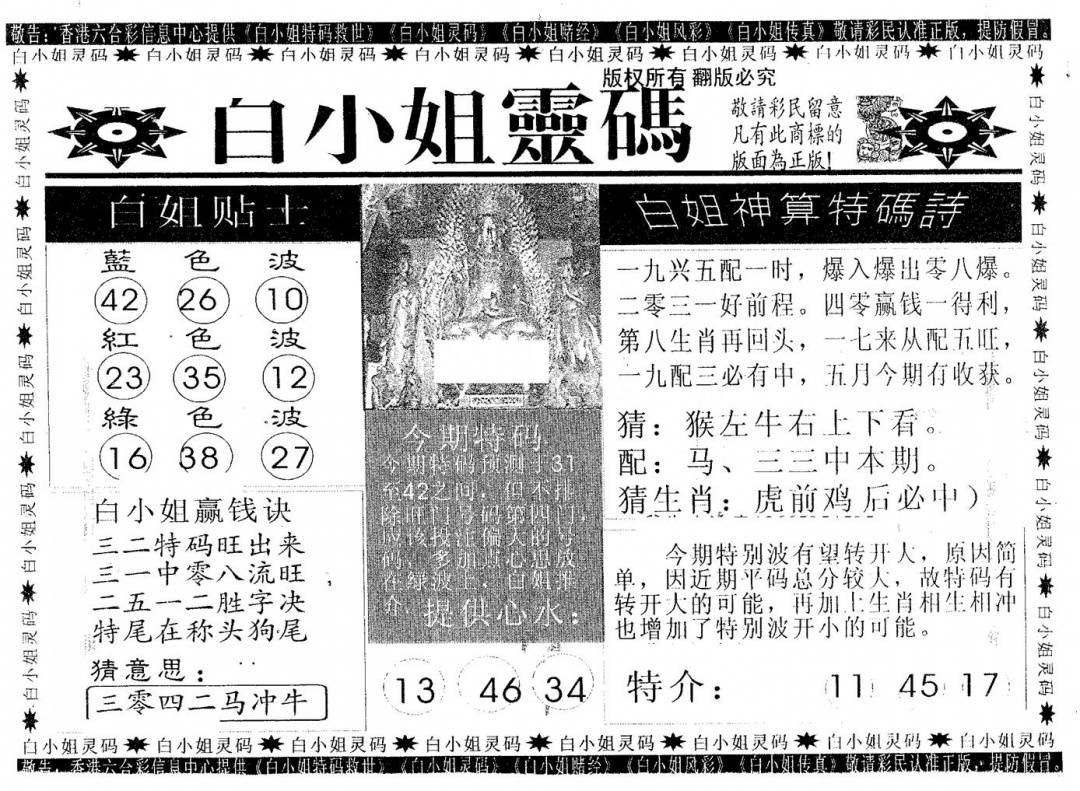 敬告：香港六合彩信息中心提供《白小姐特码救世》《白小姐灵码》《白小姐赌经》《白小姐风彩》《白小姐传真》敬请彩民认准正版，提防假冒。
白小姐灵码 白小姐灵码 白小姐灵码 白小姐灵码 白小姐灵码 白小姐灵码 白小姐灵码 白小姐灵码
版权所有 翻版必究
白小姐靈碼
敬請彩民留意
凡有此商標的
版面為正版!
白小姐灵码 白小姐灵码 白小姐灵码 白小姐灵码 白小姐灵码
白姐贴士
藍 色 波
42 26 10
紅 色 波
23 35 12
綠 色 波
16 38 27
白小姐赢钱诀
三二特码旺出来
三一中零八流旺
二五一二胜字决
特尾在称头狗尾
猜意思：
三零四二马冲牛
今期特码
今期特码预测于31
至42之间，但不排
提供心水：
13 46 34
白姐神算特碼詩
一九兴五配一时，爆入爆出零八爆。
二零三一好前程。四零赢钱一得利，
第八生肖再回头，一七来从配五旺，
一九配三必有中，五月今期有收获。
猜：猴左牛右上下看。
配：马、三三中本期。
猜生肖：虎前鸡后必中）
今期特别波有望转开大，原因简
单，因近期平码总分较大，故特码有
转开大的可能，再加上生肖相生相冲
也增加了特别波开小的可能。
特介： 11 45 17
白小姐灵码 白小姐灵码 白小姐灵码 白小姐灵码 白小姐灵码
白小姐灵码 白小姐灵码 白小姐灵码 白小姐灵码 白小姐灵码 白小姐灵码 白小姐灵码 白小姐灵码
敬告：香港六合彩信息中心提供《白小姐特码救世》《白小姐灵码》《白小姐赌经》《白小姐风彩》《白小姐传真》敬请彩民认准正版，提防假冒。